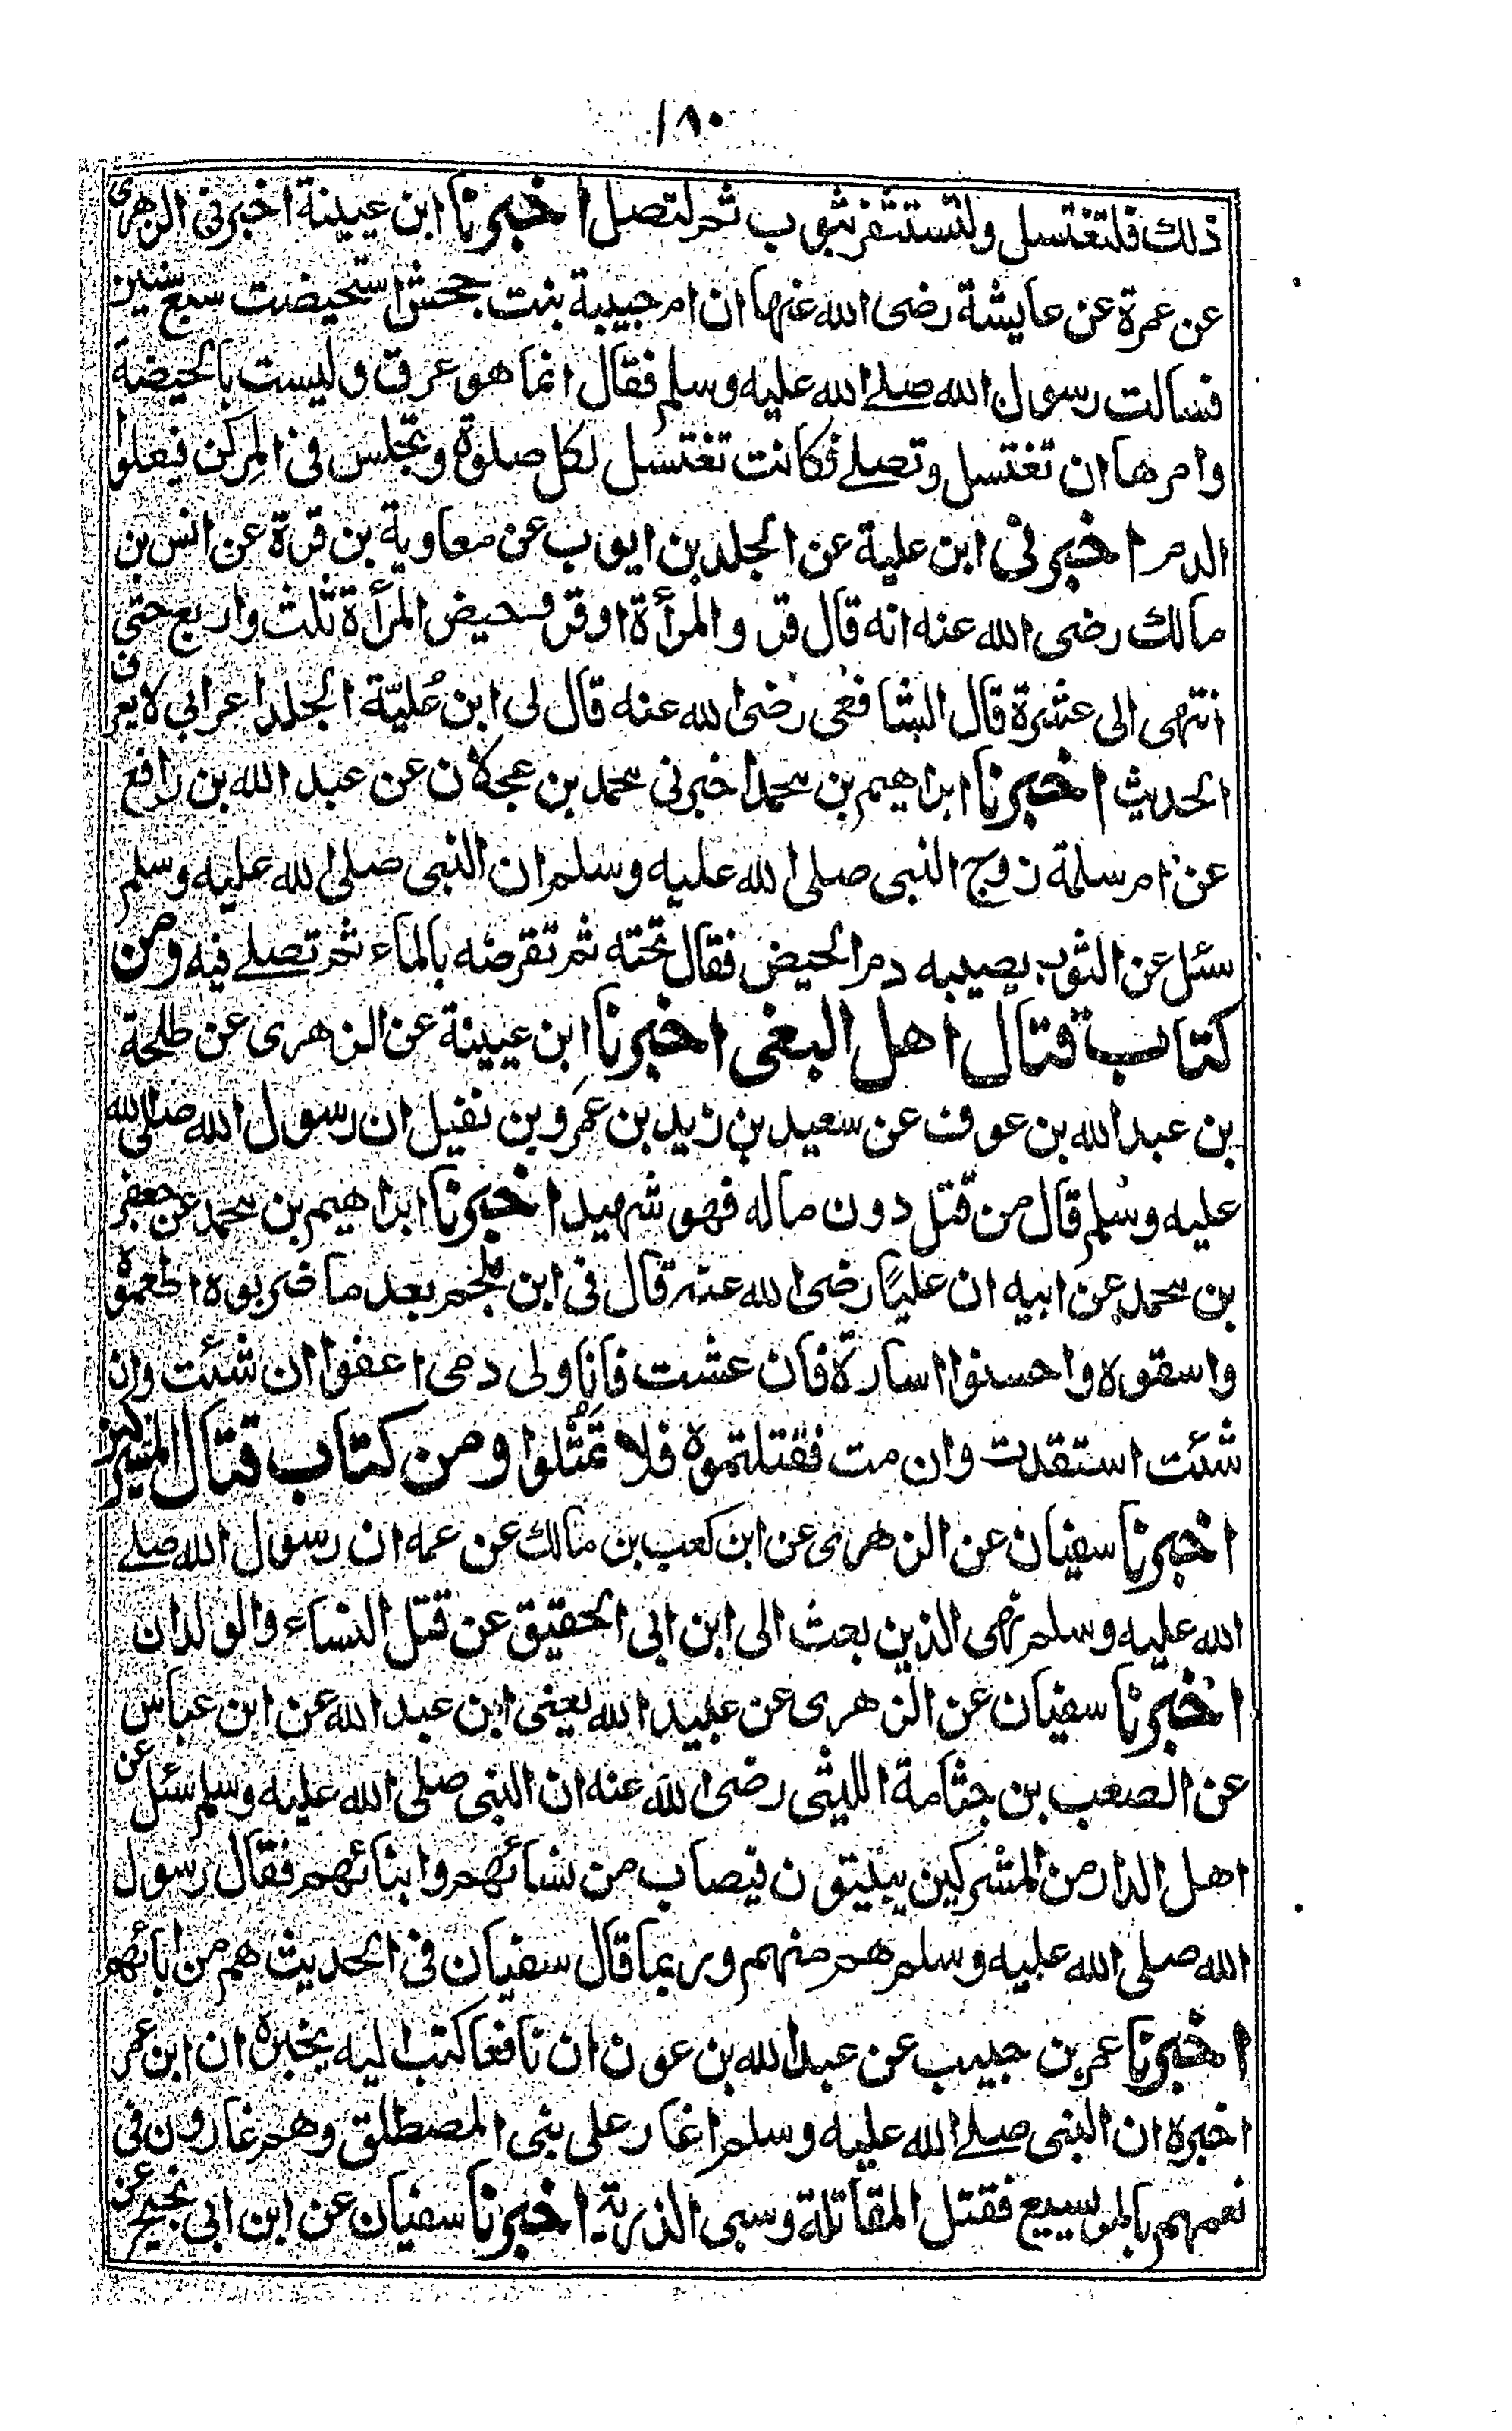 ١٨٠
ذلك فلتغتسل ولتستثفر بثوب ثم لتصل اخبرنا ابن عيينة اخبرنى الزهرى
عن عمرة عن عايشة رضى الله عنها ان ام حبيبة بنت جحش استحيضت سبع سنين
فسالت رسول الله صلے الله عليه وسلم فقال انما هو عرق وليست بالحيضة
وامرها ان تغتسل وتصلے فكانت تغتسل لكل صلوة وتجلس فى المِركن فيعلوا
الدم اخبرنى ابن علية عن الجلد بن ايوب عن معاوية بن قرة عن انس بن
مالك رضى الله عنه انه قال قرء المرأة اوقرء حيض المرأة ثلث واربع حتى
انتهى الى عشرة قال الشافعى رضى الله عنه قال لى ابن عُليّة الجلد اعرابى لا يعرف
الحديث اخبرنا ابراهيم بن محمد اخبرنى محمد بن عجلان عن عبد الله بن رافع
عن ام سلمة زوج النبى صلى الله عليه وسلم ان النبى صلى الله عليه وسلم
سئل عن الثوب يصيبه دم الحيض فقال تحته ثم تقرصه بالماء ثم تصلے فيه ومن
كتاب قتال اهل البغى اخبرنا ابن عيينة عن الزهرى عن طلحة
بن عبد الله بن عوف عن سعيد بن زيد بن عمرو بن نفيل ان رسول الله صلى الله
عليه وسلم قال من قتل دون ماله فهو شهيد اخبرنا ابراهيم بن محمد عن جعفر
بن محمد عن ابيه ان عليًا رضى الله عنه قال فى ابن ملجم بعد ما ضربوه اطعموه
واسقوه واحسنوا اساره فان عشت فانا ولى دمى اعفوا ان شئت وان
شئت استقدت وان مت فقتلتموه فلا تمثلوا ومن كتاب قتال المشركين
اخبرنا سفيان عن الزهرى عن ابن كعب بن مالك عن عمه ان رسول الله صلے
الله عليه وسلم نهى الذين بعث الى ابن ابى الحقيق عن قتل النساء والولدان
اخبرنا سفيان عن الزهرى عن عبيد الله يعنى ابن عبد الله عن ابن عباس
عن الصعب بن جثامة الليثى رضى الله عنه ان النبى صلى الله عليه وسلم سئل عن
اهل الدار من المشركين يبيتون فيصاب من نسائهم وابنائهم فقال رسول
الله صلى الله عليه وسلم هم منهم وربما قال سفيان فى الحديث هم من ابائهم
اخبرنا عمر بن حبيب عن عبد الله بن عون ان نافعا كتب اليه يخبره ان ابن عمر
اخبره ان النبى صلے الله عليه وسلم اغار على بنى المصطلق وهم غارون فى
نعمهم بالمريسيع فقتل المقاتلة وسبى الذرية اخبرنا سفيان عن ابن ابى نجيح عن